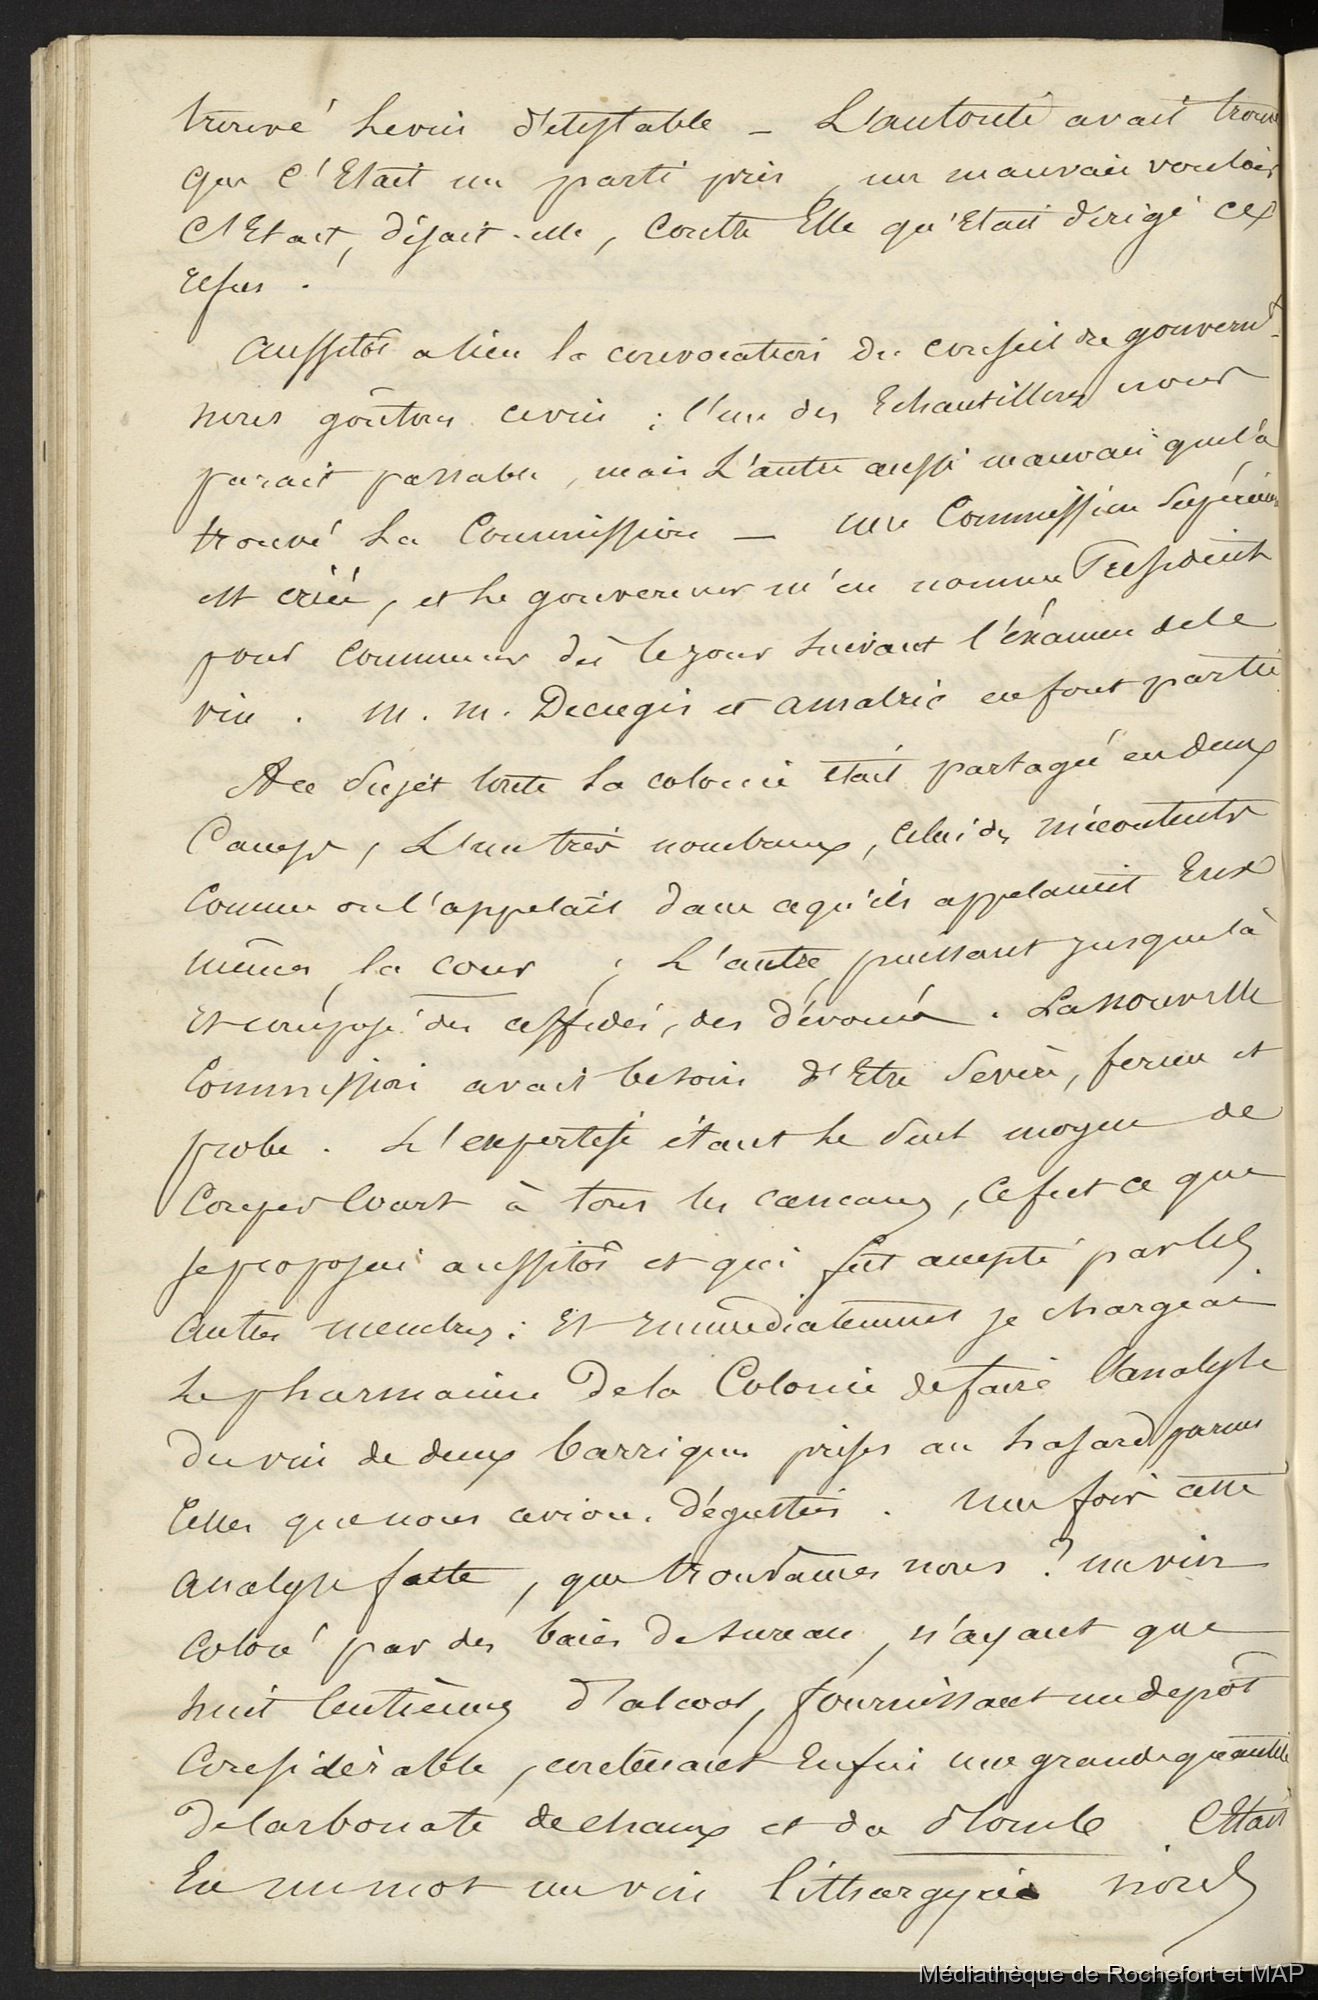 trouvé le vin détestable – L'autorité avait trouvé
que c'Etait un parti pris, un mauvais vouloir
C'Etait, disait-elle, contre Elle qu'Etait dirigé ces
refus.
Aussitôt a lieu la convocation du conseil de gouvernt
nous goûtons ce vin ; l'un des Echantillons nous
parait passable, mais L'autre aussi mauvais que l'a
trouvé La Commission – une Commission Supérieure
est créée, et le gouverneur m'en nomme President
pour commencer dès le jour suivant l'éxamen de ce
vin. M. M. Decugis et Amalric en font partie
A ce Sujet toute La colonie était partagée en deux
Camps, L'un très nombreux, Celui des mécontents
Comme on l'appelait dans ce qu'ils appelaient Eux
mêmes la cour ; L'autre puissant jusque là
Et composé des affidés, des dévoués. La nouvelle
Commission avait besoin d'Etre Sévère, ferme et
probe. L'expertise étant le Seul moyen de
Couper Court à tous les cancans, Ce fut ce que
je proposai aussitôt et qui fut accepté par les
autres membres : Et Immédiatement je chargeai
Le pharmacien De la Colonie de faire L'analyse
Du vin de deux barriques prises au hasard parmi
Celles que nous avions Dégustées. Une fois cette
analyse faite, que trouvames nous ? un vin
Coloré par des baies De sureau, n'ayant que
huit Centièmes d'alcool, fournissant un dépôt
Considérable, contenant Enfin une grande quantité
De Carbonate de chaux et de Plomb. C'Etait
En un mot un vin lithargyrié nous
Médiathèque de Rochefort et MAP